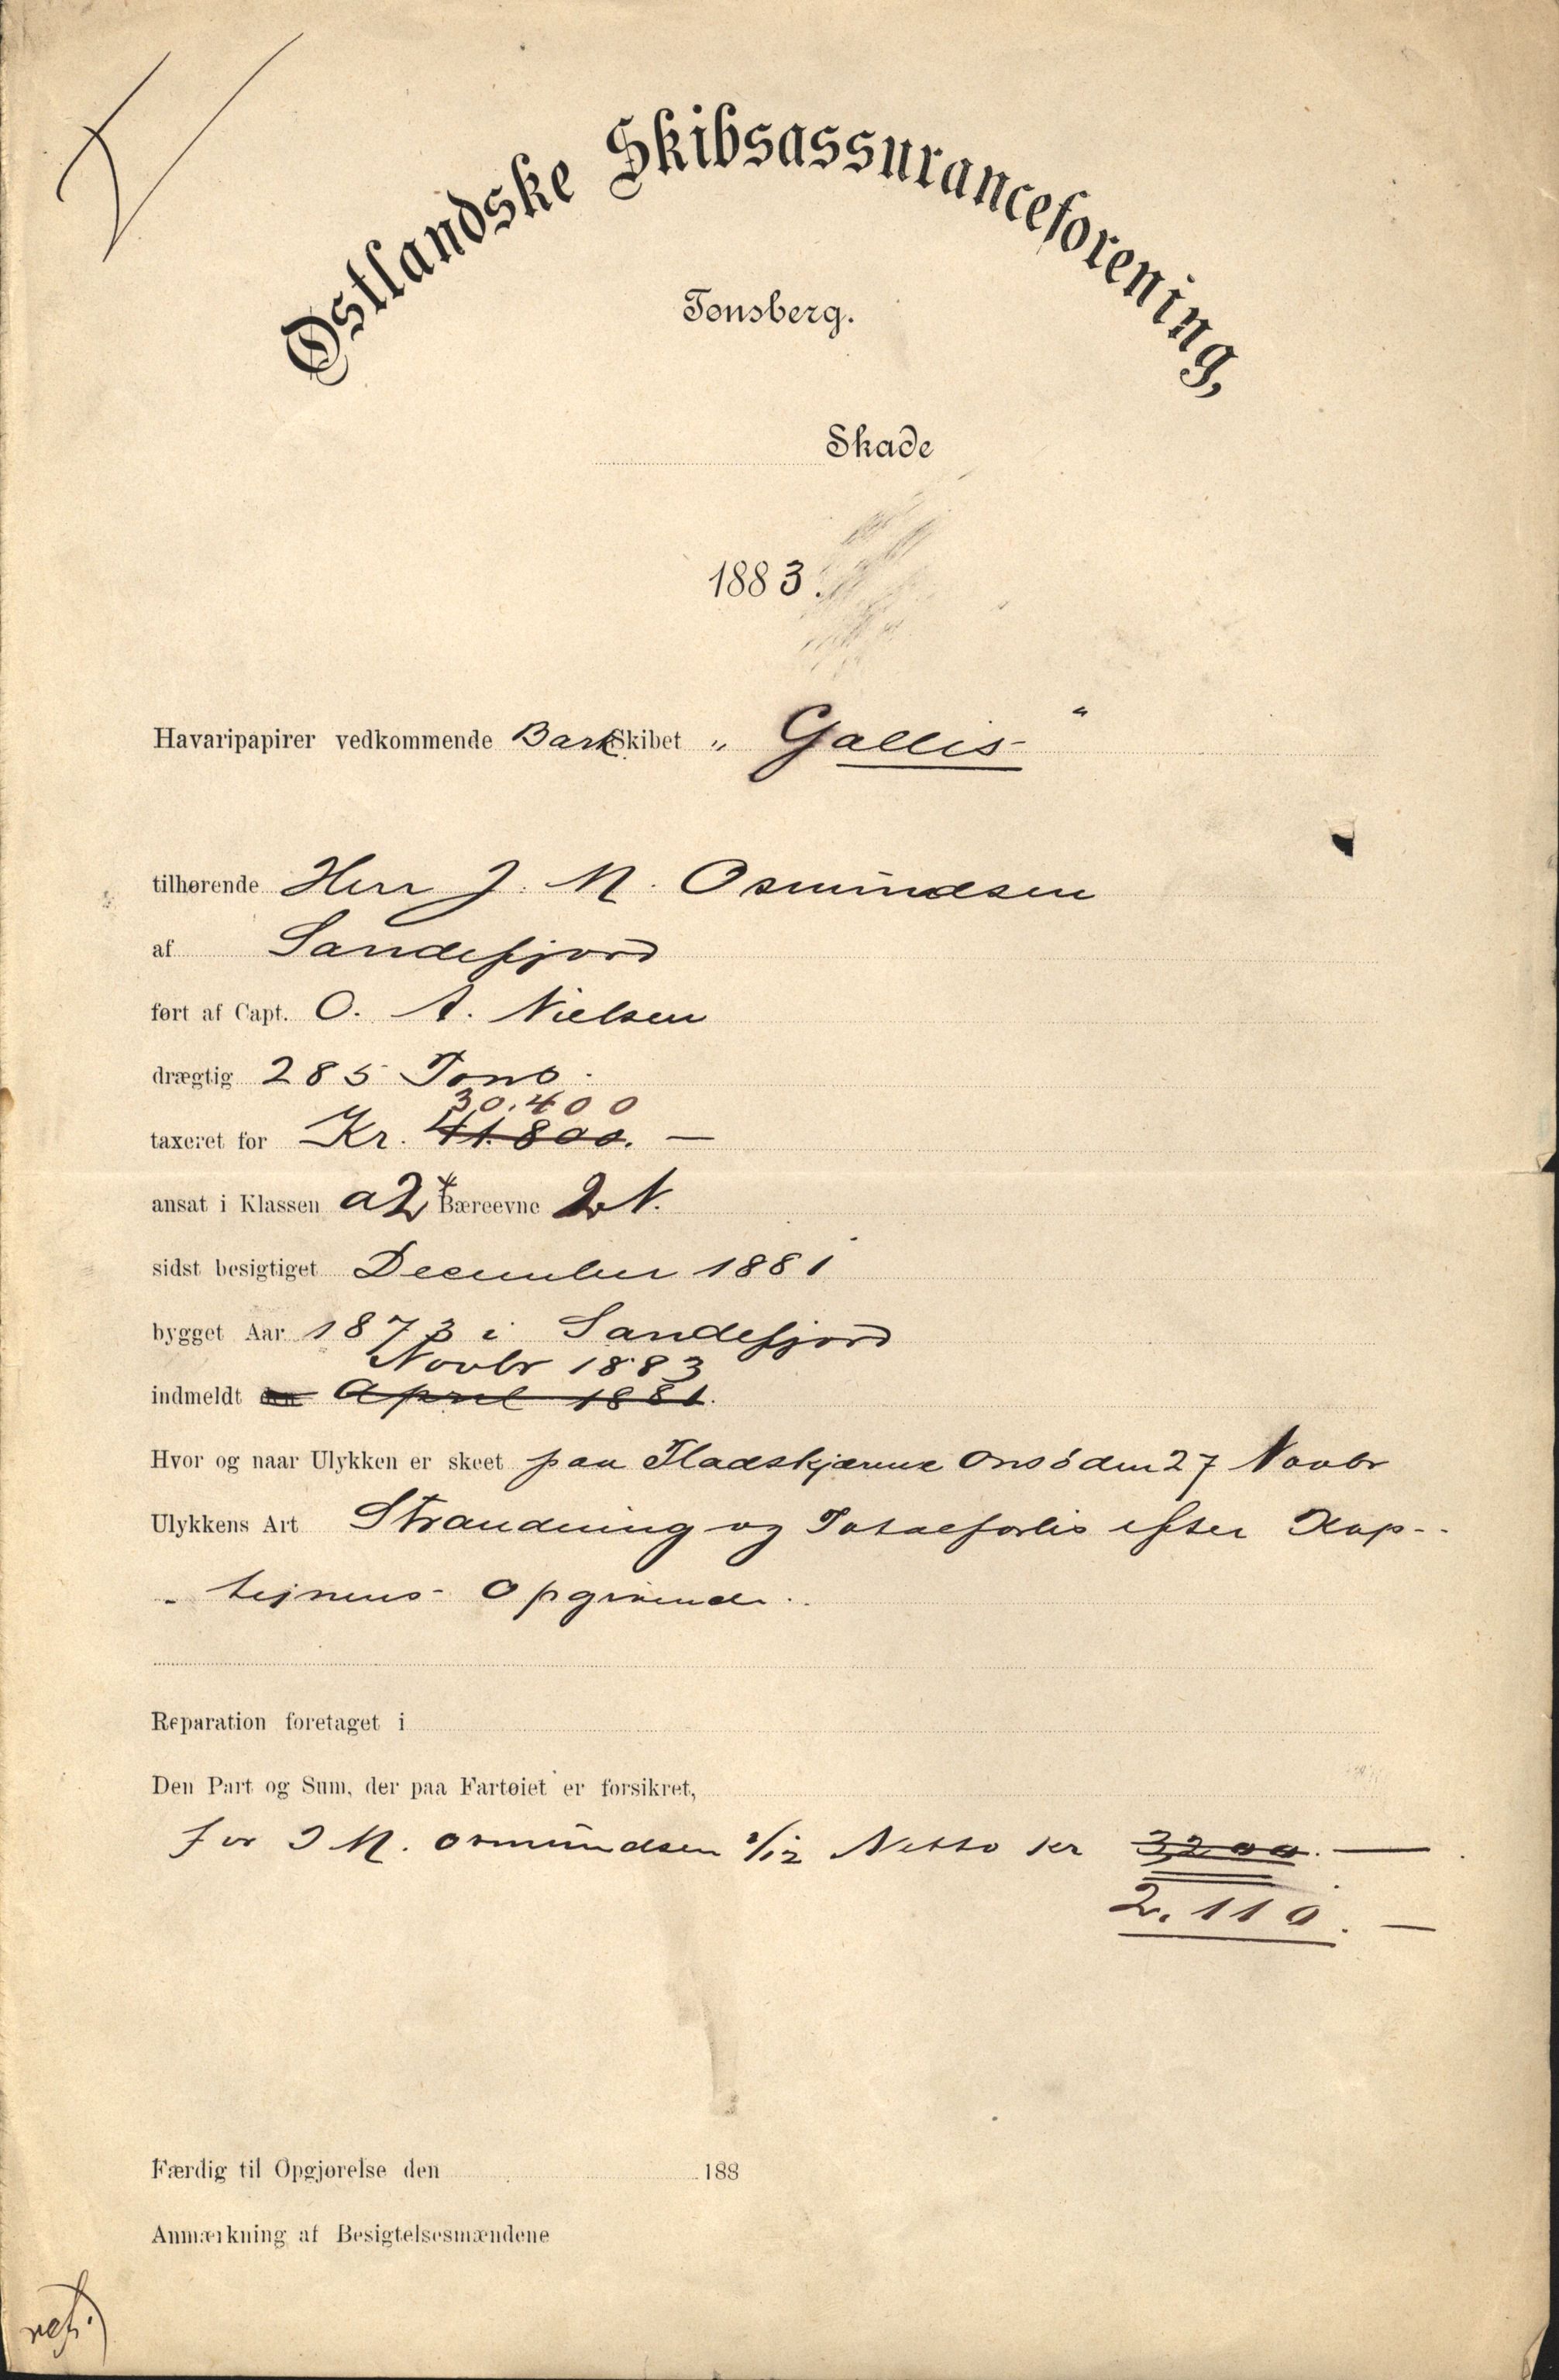 Østlandske Skibsassuranceforening,
Tønsberg.
Skade
1883.
Havaripapirer vedkommende Bark Skibet „ Gallis "
tilhørende Herr J. M. Osmundsen
af Sandefjord
ført af Capt. O. A. Nielsen
drægtig 285 Tons.
30.400
taxeret for Kr. 41.800. —
ansat i Klassen a2* Bæreevne 2 N.
sidst besigtiget December 1881
bygget Aar 1873 i Sandefjord
Novbr 1883
indmeldt den April 1881.
Hvor og naar Ulykken er skeet paa Fladskjærene Onsö den 27 Novbr
Ulykkens Art Strandning og Totalforlis efter Kap-
- tejnens Opgivende.
Reparation foretaget i
Den Part og Sum, der paa Fartøiet er forsikret,
for J M. Osmundsen 1/12 Netto Kr 3200. —
2.110. —
Færdig til Opgjørelse den 188
Anmærkning af Besigtelsesmændene